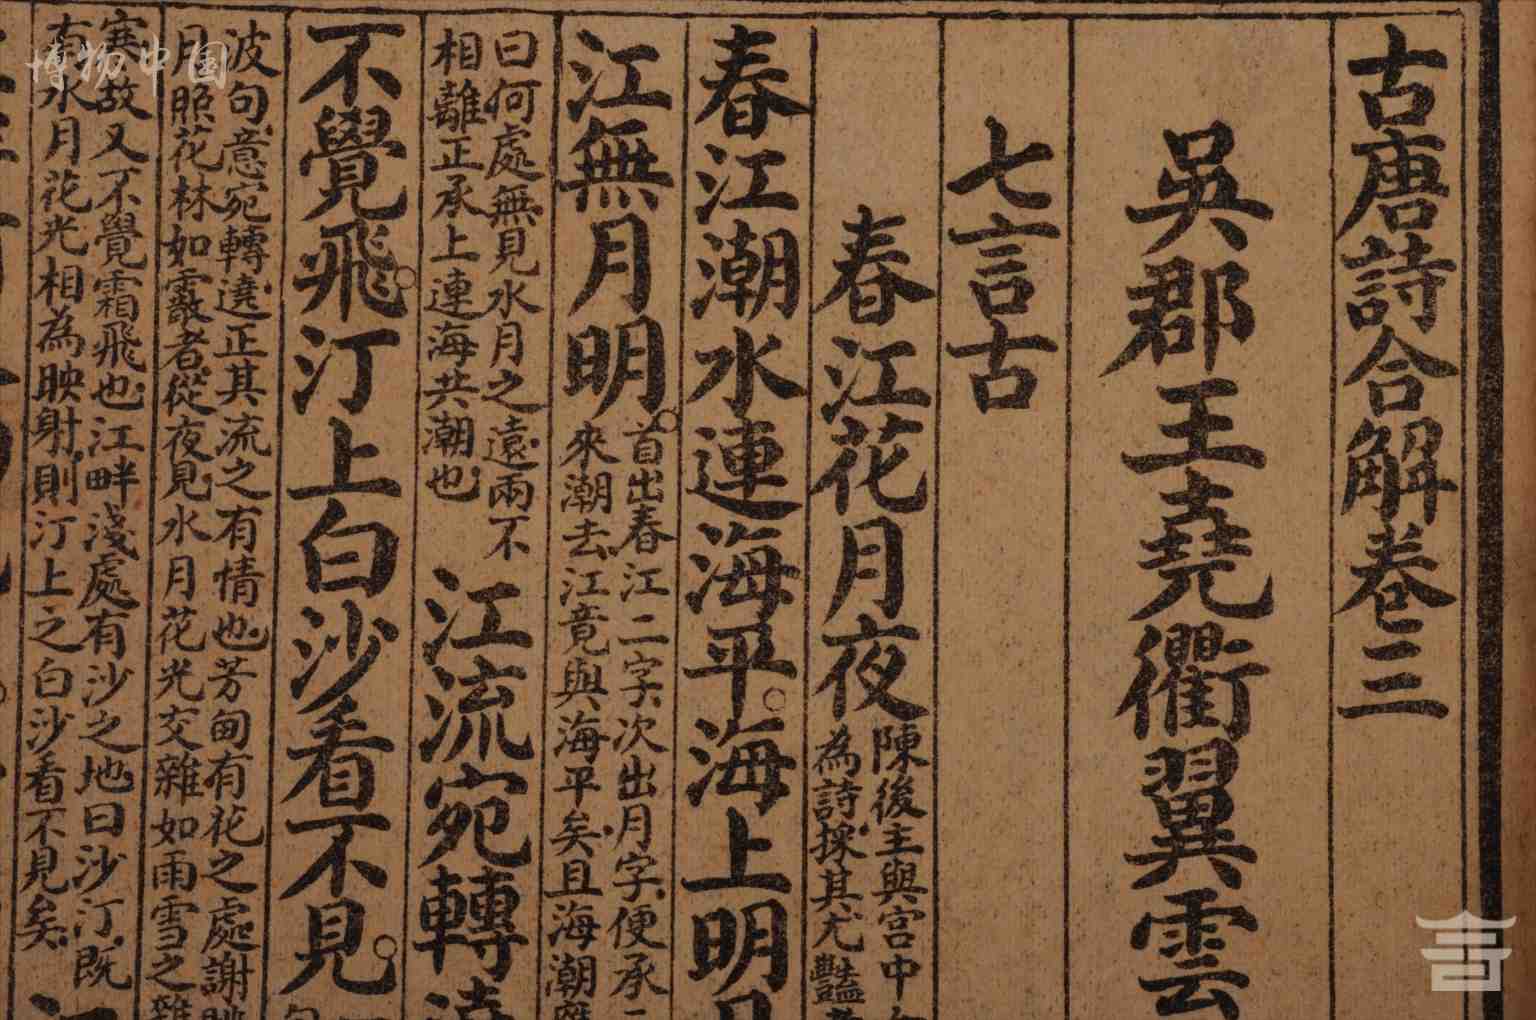 古唐詩合解卷三
吳郡王堯衢翼雲
七言古
春江花月夜
陳後主與宮中
為詩採其尤豔
春江潮水連海平海上明月
江無月明
首出春江二字次出月字便承
來潮去江竟與海平矣且海潮
曰何處無見水月之遠兩不
相離正承上連海共潮也
江流宛轉
不覺飛汀上白沙看不見
波句意宛轉遶正其流之有情也芳甸有花之處謝
月照花林如霰者從夜見水月花光交雜如雨雪之雜
寒故又不覺霜飛也江畔淺處有沙之地曰沙汀既
有水月花光相為映射則汀上之白沙看不見矣
博物中国